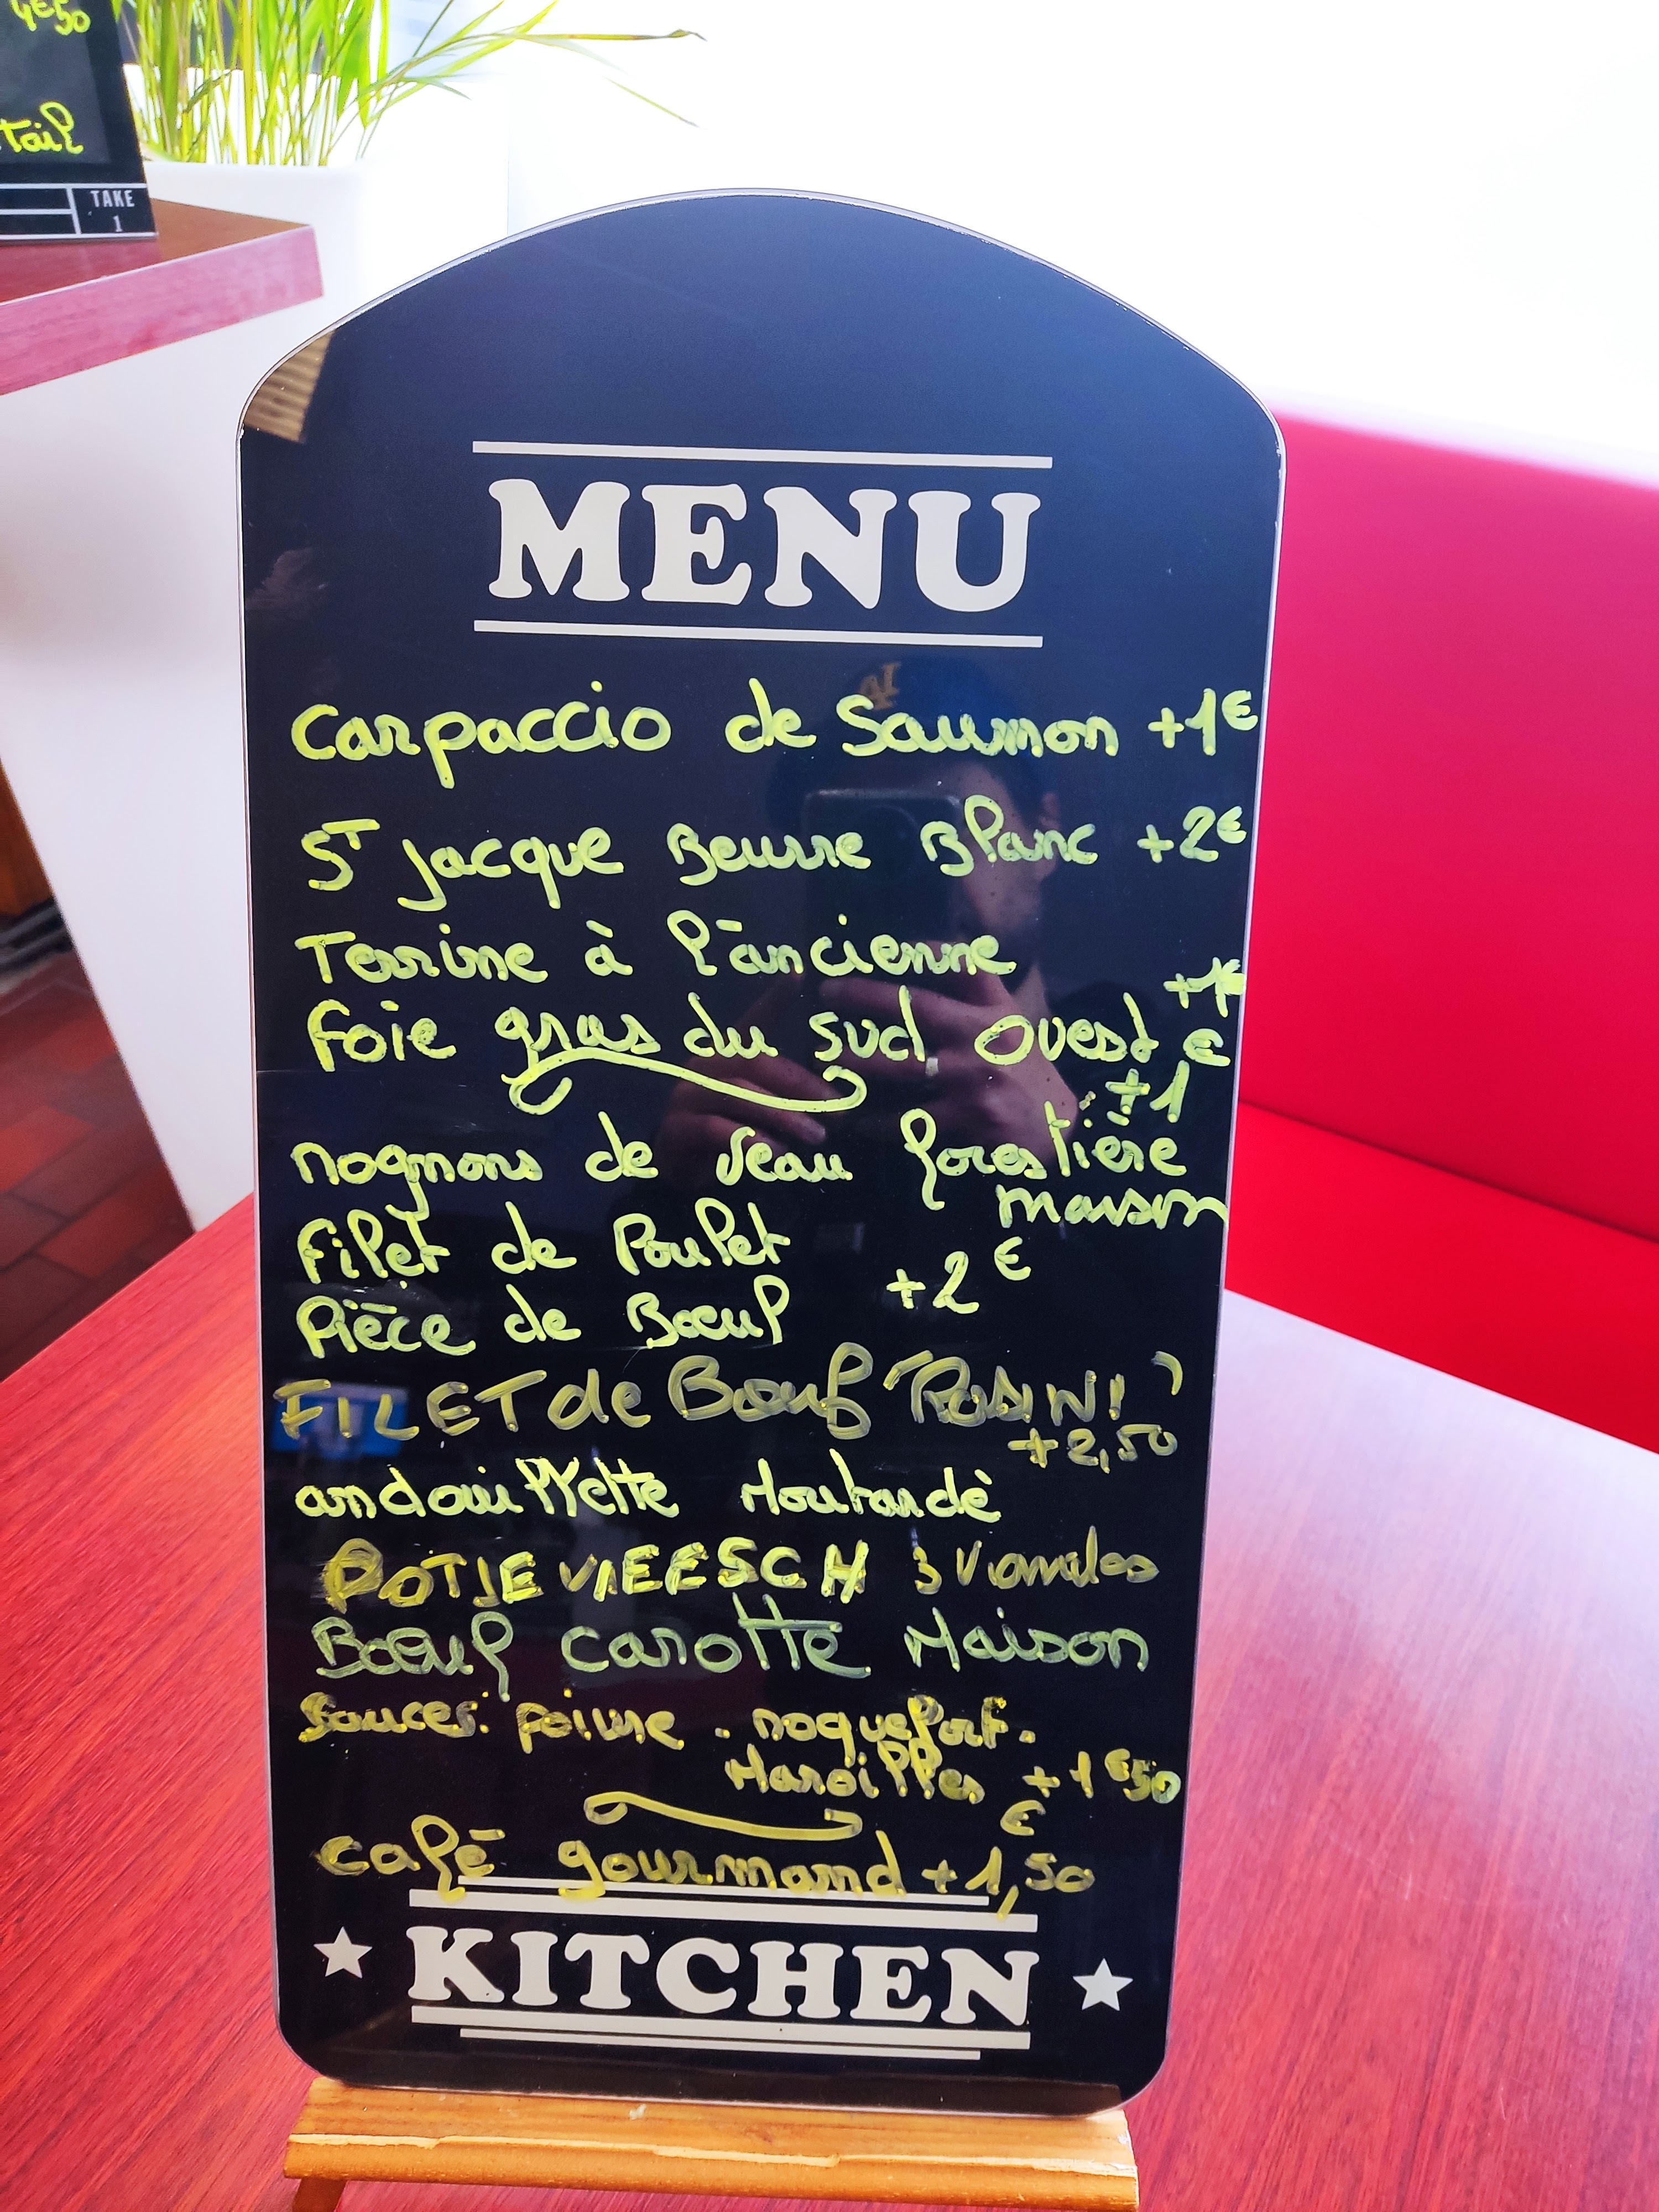 4€50
tail
TAKE
1
MENU
Carpaccio de Saumon +1€
ST Jacque Beurre Blanc +2€
Terrine à l'ancienne
+1€
Foie gras du sud ouest €
+1
rognons de Veau forestière
maison
Filet de Poulet
+2€
Pièce de Bœuf
FILET de Bœuf "ROSINI"
+2,50
andouillette Moutarde
POTJEVLEESCH 3 viandes
Bœuf carotte Maison
Sauces: poivre . roquefort.
Maroilles +1€50
€
café gourmand +1,50
KITCHEN